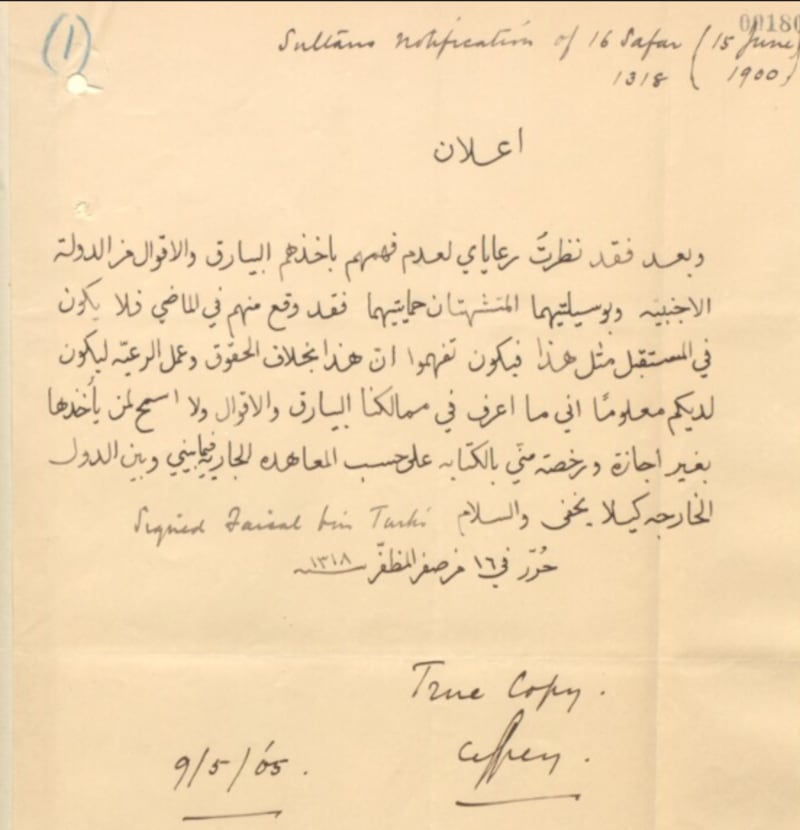 (1)
00180
Sultans Notification of 16 Safar (15 June
1318 ( 1900)
اعلان
وبعد فقد نظرتُ رعاياي لعدم فهمهم باخذهم البيارق والاقوال من الدولة
الاجنبيه وبوسيلتيهما المتشهتان حمايتيهما فقد وقع منهم في الماضي فلا يكون
في المستقبل مثل هذا فيكون تفهموا ان هذا بخلاف الحقوق وعمل الرعيّه ليكون
لديكم معلومًا اني ما اعرف في ممالكنا البيارق والاقوال ولا اسمح لمن يأخذها
بغير اجازة ورخصة منّي بالكتابه على حسب المعاهده الجاريه فيما بيني وبين الدول
الخارجه كيلا يخفى والسلام Signed Faisal bin Turki
حُرّر في ١٦ من صفر المظفّر ١٣١٨
True Copy.
9/5/05.